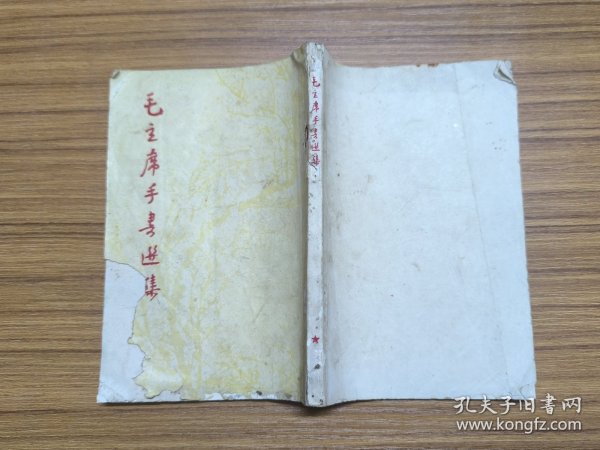 毛主席手書選集
毛主席手書選集
孔夫子旧書网
www.kongfz.com